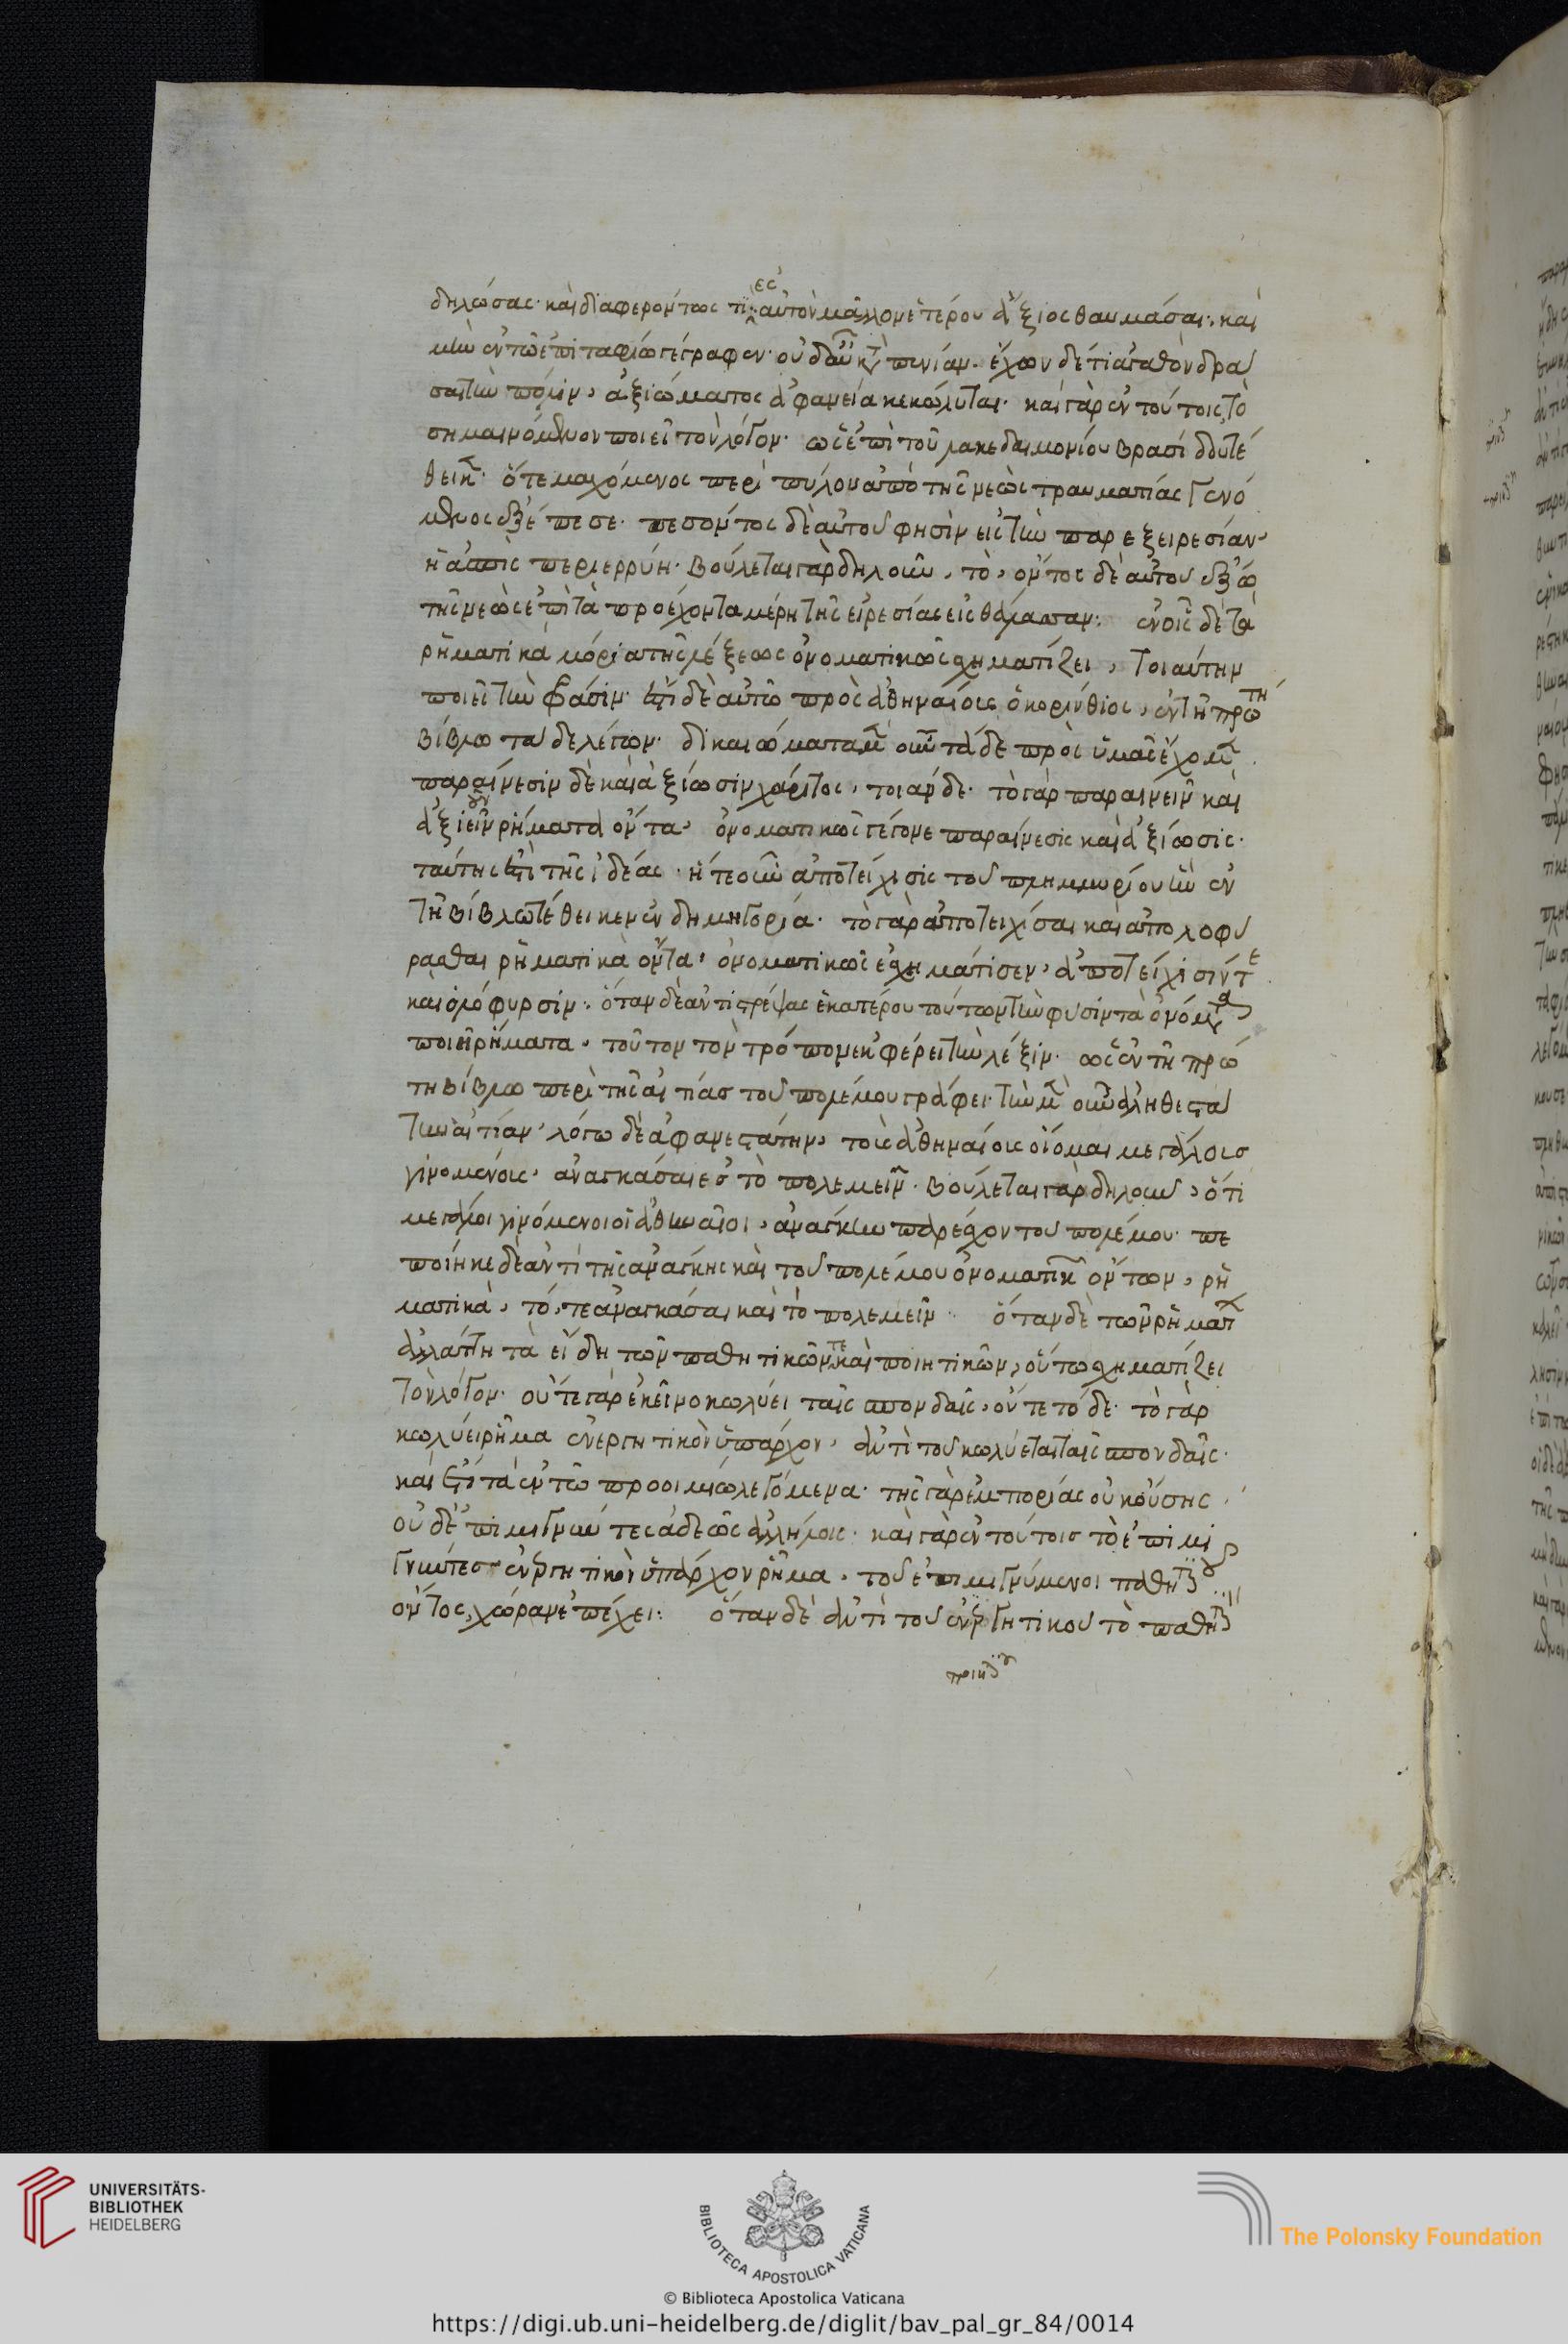 δηλώσας· καὶ διαφερόντως τι αὐτὸν μᾶλλον ἑτέρου ἄξιος θαυμάσαι, καὶ
ες
μὴν ἐν τῷ ἐπιταφίῳ γέγραφεν· οὐδ' αὖ κτ πενίαν. ἔχων δέ τι ἀγαθὸν δρᾶ
σαι τὴν πόλιν, ἀξιώματος ἀφανεία κεκώλυται· καὶ γὰρ ἐν τούτοις τὸ
σημαινόμενον ποιεῖ τὸν λόγον· ὡς ἐπὶ τοῦ λακεδαιμονίου βρασίδου τέ
θεικ· ὅτε μαχόμενος περὶ πύλον ἀπὸ τῆς νεὼς τραυματίας γενό
μενος ἐξέπεσε· πεσόντος δὲ αὐτοῦ φησὶν εἰς τὴν παρεξειρεσίαν,
ἡ ἀσπὶς περιερρύη· βούλεται γὰρ δηλοῦν, τὸ, ὄντος δὲ αὐτοῦ ἔξω
τῆς νεὼς ἐπὶ τὰ προέχοντα μέρη τῆς εἰρεσίας εἰς θάλασσαν: ἐν οἷς δὲ τὰ
ῥηματικὰ μόρια τῆς λέξεως ὀνοματικῶς σχηματίζει, τοιαύτην
ποιεῖ τὴν φάσιν· ἔστι δὲ αὐτῷ πρὸς ἀθηναίοις ὁ κορίνθιος, ἐν τῇ πρώτη
βίβλῳ τάδε λέγων· δικαιώματα μ οὖν τάδε πρὸς ὑμᾶς ἔχομ
παραίνεσιν δὲ καὶ ἀξίωσιν χάριτος, τοιάνδε· τὸ γὰρ παραινεῖν καὶ
ἀξιεῖν ῥήματα ὄντα, ὀνοματικῶς γέγονε παραίνεσις καὶ ἀξίωσις·
ταύτης ἐστὶ τῆς ἰδέας· ἥ τε οὖν ἀποτείχισις τοῦ πλημμυρίου ἣν ἐν
τῇ βίβλῳ τέθεικεν ἐν δημηγορία· τὸ γὰρ ἀποτειχίσαι καὶ ἀπολοφύ
ρασθαι ῥηματικὰ ὄντα, ὀνοματικῶς ἐσχημάτισεν, ἀποτείχισίν τε
καὶ ὀλόφυρσιν· ὅταν δὲ ἀντιστρέψας ἑκατέρου τούτων τὴν φύσιν τὰ ὀνόματα
ποιῇ ῥήματα, τοῦτον τὸν τρόπον ἐκφέρει τὴν λέξιν· ὡς ἐν τῇ πρώ
τη βίβλῳ περὶ τῆς αἰτίας τοῦ πολέμου γράφει· τὴν μ οὖν ἀληθεστά
την αἰτίαν, λόγω δὲ ἀφανεστάτην, τοὺς ἀθηναίοις οἴομαι μεγάλοις
γινομένοις, ἀναγκάσαι ες τὸ πολεμεῖν. βούλεται γὰρ δηλοῦν, ὅτι
μεγάλοι γινόμενοι οἱ ἀθηναῖοι, ἀνάγκην παρέσχον τοῦ πολέμου· πε
ποίηκε δὲ ἀντὶ τῆς ἀνάγκης καὶ τοῦ πολέμου ὀνοματικ ὄντων, ῥη
ματικὰ, τό, τε ἀναγκάσαι καὶ τὸ πολεμεῖν· ὅταν δὲ τῶν ῥηματ
ἀλλάττη τὰ εἴδη τῶν παθητικῶν τε καὶ ποιητικῶν, οὕτω σχηματίζει
τὸν λόγον· οὔτε γὰρ ἐκεῖνο κωλύει ταῖς σπονδαῖς, οὔτε τόδε· τὸ γὰρ
κωλύει ῥῆμα ἐνεργητικὸν ὑπάρχον, ἀντὶ τοῦ κωλύεται ταῖς σπονδαῖς·
καὶ ἔστι τὰ ἐν τῷ προοιμίῳ λεγόμενα· τῆς γὰρ ἐμπορίας οὐκ οὔσης,
οὐδ' ἐπιμιγνύντες ἀδεῶς ἀλλήλοις· καὶ γὰρ ἐν τούτοις τὸ ἐπιμι
γνύντες ἐνεργητικὸν ὑπάρχον ῥῆμα, τοῦ ἐπιμιγνύμενοι παθητικοῦ
ὄντος, χώραν ἐπέχει: ὅταν δὲ ἀντὶ τοῦ ἐνεργητικοῦ τὸ παθητ